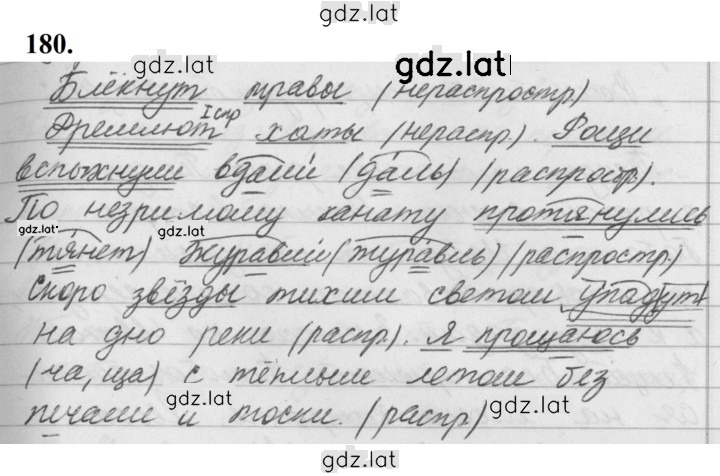 gdz.lat
180.
gdz.lat gdz.lat
Блёкнут травы (нераспростр)
I спр
Дремлют хаты (нераспр). Рощи
вспыхнули вдали (даль) (распростр).
По незримому канату протянулись
gdz.lat gdz.lat
(тянет) Журавли (журавль) (распростр.)
Скоро звёзды тихим светом упадут
на дно реки (распр). Я прощаюсь
(ча, ща) с тёплым летом без
gdz.lat gdz.lat
печали и тоски. (распр)
gdz.lat